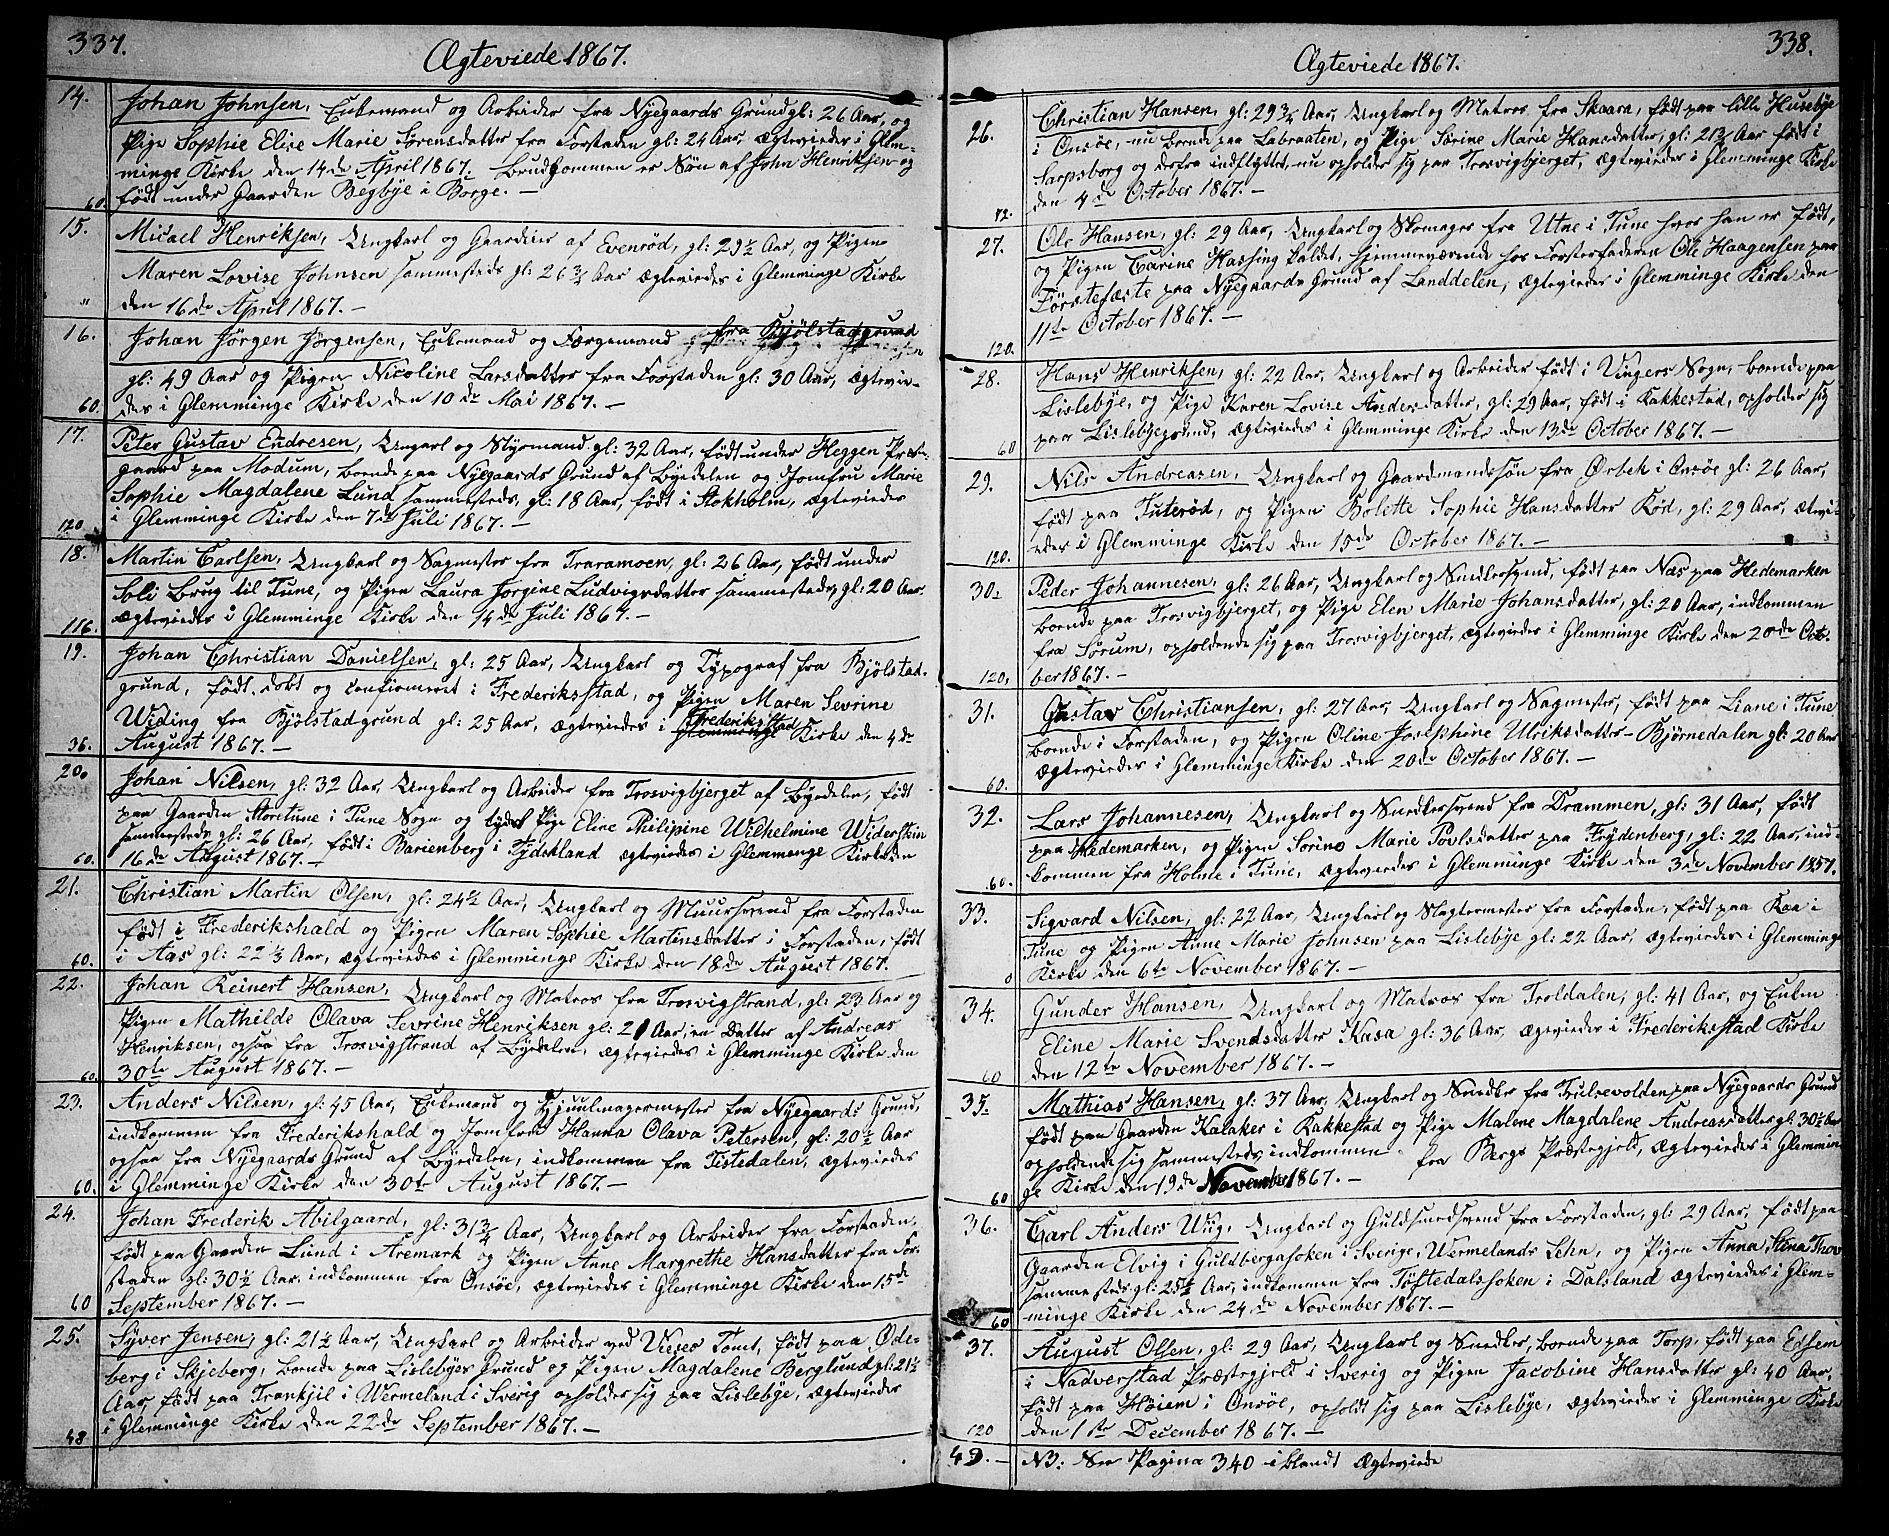 337.
Ægteviede 1867.
14. Johan Johnsen, Enkemand og Arbeider fra Nyegaards Grund gl: 26 Aar, og
Pige Sophie Elise Marie Sørensdatter fra Forstaden gl: 24 Aar, ægtevieder i Glem-
minge Kirke den 14de April 1867. Brudgommen er Søn af John Henriksen og
60. født under Gaarden Begbye i Borge. —
15. Micael Henriksen, Ungkarl og Gaardeier af Evenrød, gl: 29½ Aar, og Pigen
Maren Lovise Johnsen sammesteds gl: 26¾ Aar ægtevieder i Glemminge Kirke
" den 16de April 1867. —
16. Johan Jørgen Jørgensen, Enkemand og Færgemand fra Kjølstadgrund
gl: 49 Aar og Pigen Nicoline Larsdatter fra Forstaden gl: 30 Aar, ægtevie-
60. des i Glemminge Kirke den 10de Mai 1867. —
17. Peter Gustav Endresen, Ungkarl og Styrmand gl: 32 Aar, født under Heggen Præste-
gaard paa Modum, boende paa Nyegaards Grund af Byedelen og Jomfru Marie
Sophie Magdalene Lund sammesteds, gl: 18 Aar, født i Stokholm, ægteviedes
120 i Glemminge Kirke den 7de Juli 1867. —
18. Martin Carlsen, Ungkarl og Sagmester fra Traramoen, gl: 26 Aar, født under
bli Brug til Tune, og Pigen Laura Jørgine Ludvigsdatter sammesteds, gl: 20 Aar.
116. ægtevieder i Glemminge Kirke den 14de Juli 1864. —
19. Johan Christian Danielsen, gl: 25 Aar, Ungkarl og Typograf fra Kjølstad-
grund, født, døbt og confirmeret i Frederiksstad, og Pigen Maren Sevrine
Widing fra Kjølstadgrund gl: 25 Aar, ægtevieder i Frederiksstad Kirke den 4de
36. August 1867. —
20. Johan Nilsen, gl: 32 Aar, Ungkarl og Arbeider fra Trosvigbjerget af Byedelen, født
paa Gaarden Storetune i Tune Sogn og Pige Eline Philipine Wilhelmine Widerstein
sammesteds gl: 26 Aar, født i Marienberg i Tydskland ægtevieder i Glemmenge Kirke den
60. 16de August 1867. —
21. Christian Martin Olsen, gl: 24½ Aar, Ungkarl og Muursvend fra Forstaden
født i Frederikshald og Pigen Maren Sophie Martinsdatter i Forstaden, født
60. i Aas gl: 22⅓ Aar, ægtevieder i Glemminge Kirke den 18de August 1867.
22. Johan Reinert Hansen, Ungkarl og Matros fra Trosvigstrand, gl: 23 Aar og
Pigen Mathilde Olava Sevrine Henriksen gl: 21 Aar, en Datter af Andreas
Henriksen, ogsaa fra Trosvigstrand af Byedelen, ægtevieder i Glemminge Kirke den
60. 30te August 1867. —
23. Anders Nilsen, gl: 45 Aar, Enkemand og Hjuulmagermester fra Nyegaards Grund,
indkommen fra Frederikshald og Jomfru Hanna Olava Petersen, gl: 20½ Aar
ogsaa fra Nyegaards Grund af Byedelen, indkommen fra Tistedalen, ægteviedes
60. i Glemminge Kirke den 30te August 1867. —
24. Johan Frederik Abilgaard, gl: 31¾ Aar, Ungkarl og Arbeider fra Forstaden,
født paa Gaarden Lund i Aremark og Pigen Anne Margrethe Hansdatter fra For-
staden gl: 30½ Aar, indkommen fra Onsöe, ægtevieder i Glemminge Kirke den 15de
60 September 1867. —
25. Syver Jensen, gl: 21½ Aar, Ungkarl og Arbeider ved Tomt, født paa Øde-
berg i Skjeberg, boende paa Lislebyes Grund og Pigen Magdalene Berglund gl: 21½
Aar, født paa Trankjil i Wermeland i Sverig opholder sig paa Lislebye, ægtevieder
48 i Glemminge Kirke den 22de September 1867. —
338.
Ægteviede 1867.
26. Christian Hansen, gl: 29¾ Aar, Ungkarl og Matros fra Skaara, født paa lille Husebye
i Onsöe, nu boende paa Labraaten, og Pige Sørine Marie Hansdatter, gl: 21¾ Aar født i
Sarpsborg og derfra indflyttet, nu opholder sig paa Trosvigbjerget, ægtevieder i Glemminge Kirke
12. den 4de October 1867. —
27. Ole Hansen, gl: 29 Aar, Ungkarl og Skomager fra Utne i Tune hvor han er født,
og Pigen Carine Hassing kaldet, hjemmeværende hos Forsterfaderen Ole Haagensen paa
Førstefæste paa Nyegaards Grund af Landdelen, ægtevieder i Glemminge Kirke den
120. 11te October 1867. —
28. Hans Henriksen, gl: 22 Aar, Ungkarl og Arbeider født i Vingers Sogn, boende paa
Lislebye, og Pige Karen Lovise Andersdatter, gl: 29 Aar, født i Rakkestad, opholder sig
60 paa Lislebyegrund, ægtevieder i Glemminge Kirke den 13de October 1867. —
29. Nils Andreasen, Ungkarl og Gaardmandssön fra Ørbek i Onsöe gl: 26 Aar,
født paa Tuterød, og Pigen Bolette Sophie Hansdatter Rød, gl: 29 Aar, ægtevi-
120. eder i Glemminge Kirke den 15de October 1867. —
30. Peder Johannesen, gl: 26 Aar, Ungkarl og Snedkersvend, født paa Næs paa Hedemarken
boende paa Trosvigbjerget, og Pige Elen Marie Johansdatter, gl: 20 Aar, indkommen
fra Sørum, opholdende sig paa Trosvigbjerget, ægtevieder i Glemminge Kirke den 20de Octo-
120, ber 1867. —
31. Gustav Christiansen, gl: 27 Aar, Ungkarl og Sagmester, født paa Liane i Tune
boende i Forstaden, og Pigen Oline Josephine Ulriksdatter Bjørnedalen gl: 20 Aar
60. ægtevieder i Glemminge Kirke den 20de October 1867. —
32. Lars Johannesen, Ungkarl og Snedkersvend fra Drammen, gl: 31 Aar, født
paa Hedemarken, og Pigen Sørine Marie Povlsdatter paa Frydenberg, gl: 22 Aar, ind-
60. kommen fra Holme i Tune, ægtevieder i Glemminge Kirke den 3de November 1857.
33. Sigvard Nilsen, gl: 22 Aar, Ungkarl og Slagtermester fra Forstaden, født paa Raa i
Tune og Pigen Anne Marie Johnsen paa Lislebye gl: 22 Aar, ægtevieder i Glemminge
0 Kirke den 6te November 1867. —
34. Gunder Hansen, Ungkarl og Matros fra Troldalen, gl: 41 Aar, og Enken
Eline Marie Svendsdatter Kasa gl: 36 Aar, ægtevieder i Frederiksstad Kirke
60 den 12te November 1867. —
35. Mathias Hansen, gl: 37 Aar, Ungkarl og Snedker fra Fulrevolden paa Nyegaards Grund
født paa Gaarden Kalaker i Rakkestad og Pige Malene Magdalene Andreasdatter gl: 30½ Aar
opholdende sig sammesteds, indkommen fra Bergs Præstegjeld, ægtevieder i Glemmin-
60 ge Kirke den 19de November 1867. —
36. Carl Anders Uig, Ungkarl og Guldsmedsvend fra Forstaden, gl: 29 Aar, født paa
Gaarden Elvig i Guldbergasoken i Sverige, Wermelands Lehn, og Pigen Anna Stina Thov
sammesteds, gl: 25½ Aar, indkommen fra Töftedalssoken i Dalsland ægtevieder i Glem-
60 minge Kirke den 24de November 1867. —
37. August Olsen, gl: 29 Aar, Ungkarl og Snedker, boende paa Torp, født paa Edsem
i Nadverstad Præstegjeld i Sverig og Pigen Jacobine Hansdatter gl: 40 Aar,
født paa Høiem i Onsöe, opholdt sig paa Lislebye, ægtevieder i Glemminge Kirke
120 den 1ste December 1867. —
49. — NB: Se Pagina 340 iblandt Ægteviede